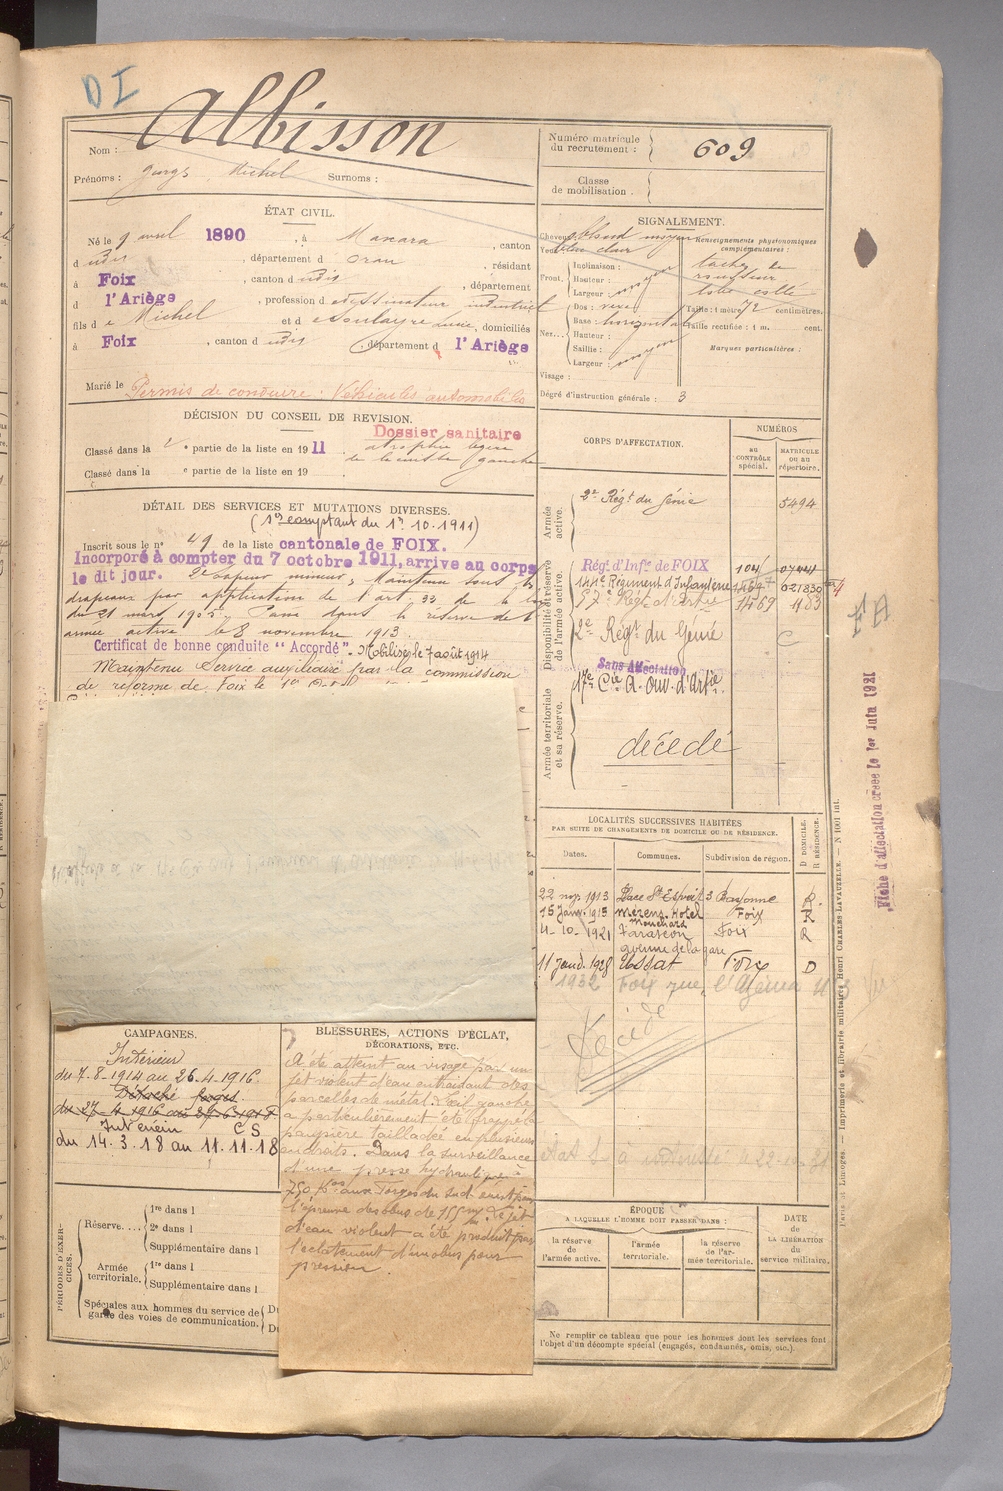 DI
Albisson
Nom :
Prénoms : Michel Surnoms :
Numéro matricule du recrutement : 609
Classe de mobilisation .
ÉTAT CIVIL.
Né le 9 avril 1890, à , canton
d udis, département d Oran, résidant
à Foix, canton d udis, département
d l'Ariège, profession d e dessinateur industriel
fils d e Michel et d e Soulayre , domiciliés
à Foix, canton d udis, département d l'Ariège
Marié le
Permis de conduire : Véhicules automobiles
SIGNALEMENT.
Cheveux blond moyen
Yeux bleu clair
Front. Inclinaison :
Hauteur :
Largeur : moyen
Nez... Dos :
Base : horizontal
Hauteur :
Saillie :
Largeur : moyen
Visage :
Renseignements physionomiques complémentaires :
tache de
rousseur
lobe collé
Taille : 1 mètre 72 centimètres.
Taille rectifiée : 1 m. cent.
Marques particulières :
Dégré d'instruction générale : 3
DÉCISION DU CONSEIL DE REVISION.
Dossier sanitaire
Classé dans la 2e partie de la liste en 1911
atrophie légère
de la cuisse gauche
Classé dans la e partie de la liste en 19
DÉTAIL DES SERVICES ET MUTATIONS DIVERSES.
(1er comptant du 1er 10.1911)
Inscrit sous le n° 49 de la liste cantonale de FOIX.
Incorporé à compter du 7 octobre 1911, arrive au corps
le dit jour. 2e sapeur mineur, Maintenu sous les
drapeaux par application de l'art. 33 de la loi
du 21 mars 1905. Passé dans la réserve de l'
armée active le 8 novembre 1913.
Certificat de bonne conduite "Accordé". Mobilisé le 7 août 1914
Maintenu Service auxiliaire par la commission
de réforme de Foix le 1er
CORPS D'AFFECTATION.
NUMÉROS
au CONTRÔLE spécial.
MATRICULE OU AU répertoire.
Armée active.
2e Régt du Génie 5494
Disponibilité et réserve de l'armée active.
Régt d'Infie de FOIX 104
144e Régiment d'Infanterie 1469 021830
57e Régt d'Artie 1469 483
2e Régt du Génie C
Sans Affectation
Armée territoriale et sa réserve.
17e Cie d. ouv. d'Artie.
décédé
F A
Fiche d'affectation créée le 1er Juin 1921
LOCALITÉS SUCCESSIVES HABITÉES
PAR SUITE DE CHANGEMENTS DE DOMICILE OU DE RÉSIDENCE.
Dates.
Communes.
Subdivision de région.
D DOMICILE.
R RÉSIDENCE.
22 nov. 1913 Place St Esprit 3 Bayonne R.
15 Janv. 1915 Mérens. Hotel Mouchard Foix R
4-10-1921 Tarascon avenue de la gare Foix R
11 Janv. 1928 Ussat Foix D
1932 Foix rue
Décédé
CAMPAGNES.
Intérieur
du 7-8-1914 au 26.4.1916.
Détaché forges.
du 27-4-1916 au
Intérieur C S
du 14.3.18 au 11.11.18
BLESSURES, ACTIONS D'ÉCLAT,
DÉCORATIONS, ETC.
A été atteint au visage par un
jet violent d'eau entraînant des
parcelles de métal. L'œil gauche
a particulièrement été frappé la
paupière tailladée en plusieurs
endroits. Dans la surveillance
d'une presse hydraulique à
750 Kgs aux Forges du Sud
l'épreuve des obus de 155 m/m. Le jet
d'eau violent a été produit par
l'éclatement d'un obus pour
pression.
PÉRIODES D'EXERCICES.
Réserve....
1re dans l
2e dans l
Supplémentaire dans l
Armée territoriale.
1re dans l
Supplémentaire dans l
Spéciales aux hommes du service de garde des voies de communication.
ÉPOQUE
A LAQUELLE L'HOMME DOIT PASSER DANS :
la réserve de l'armée active.
l'armée territoriale.
la réserve de l'armée territoriale.
DATE
de
LA LIBÉRATION
du
service militaire.
Ne remplir ce tableau que pour les hommes dont les services font
l'objet d'un décompte spécial (engagés, condamnés, omis, etc.).
Paris et Limoges. — Imprimerie et librairie militaires Henri CHARLES-LAVAUZELLE. — N 1001 int.